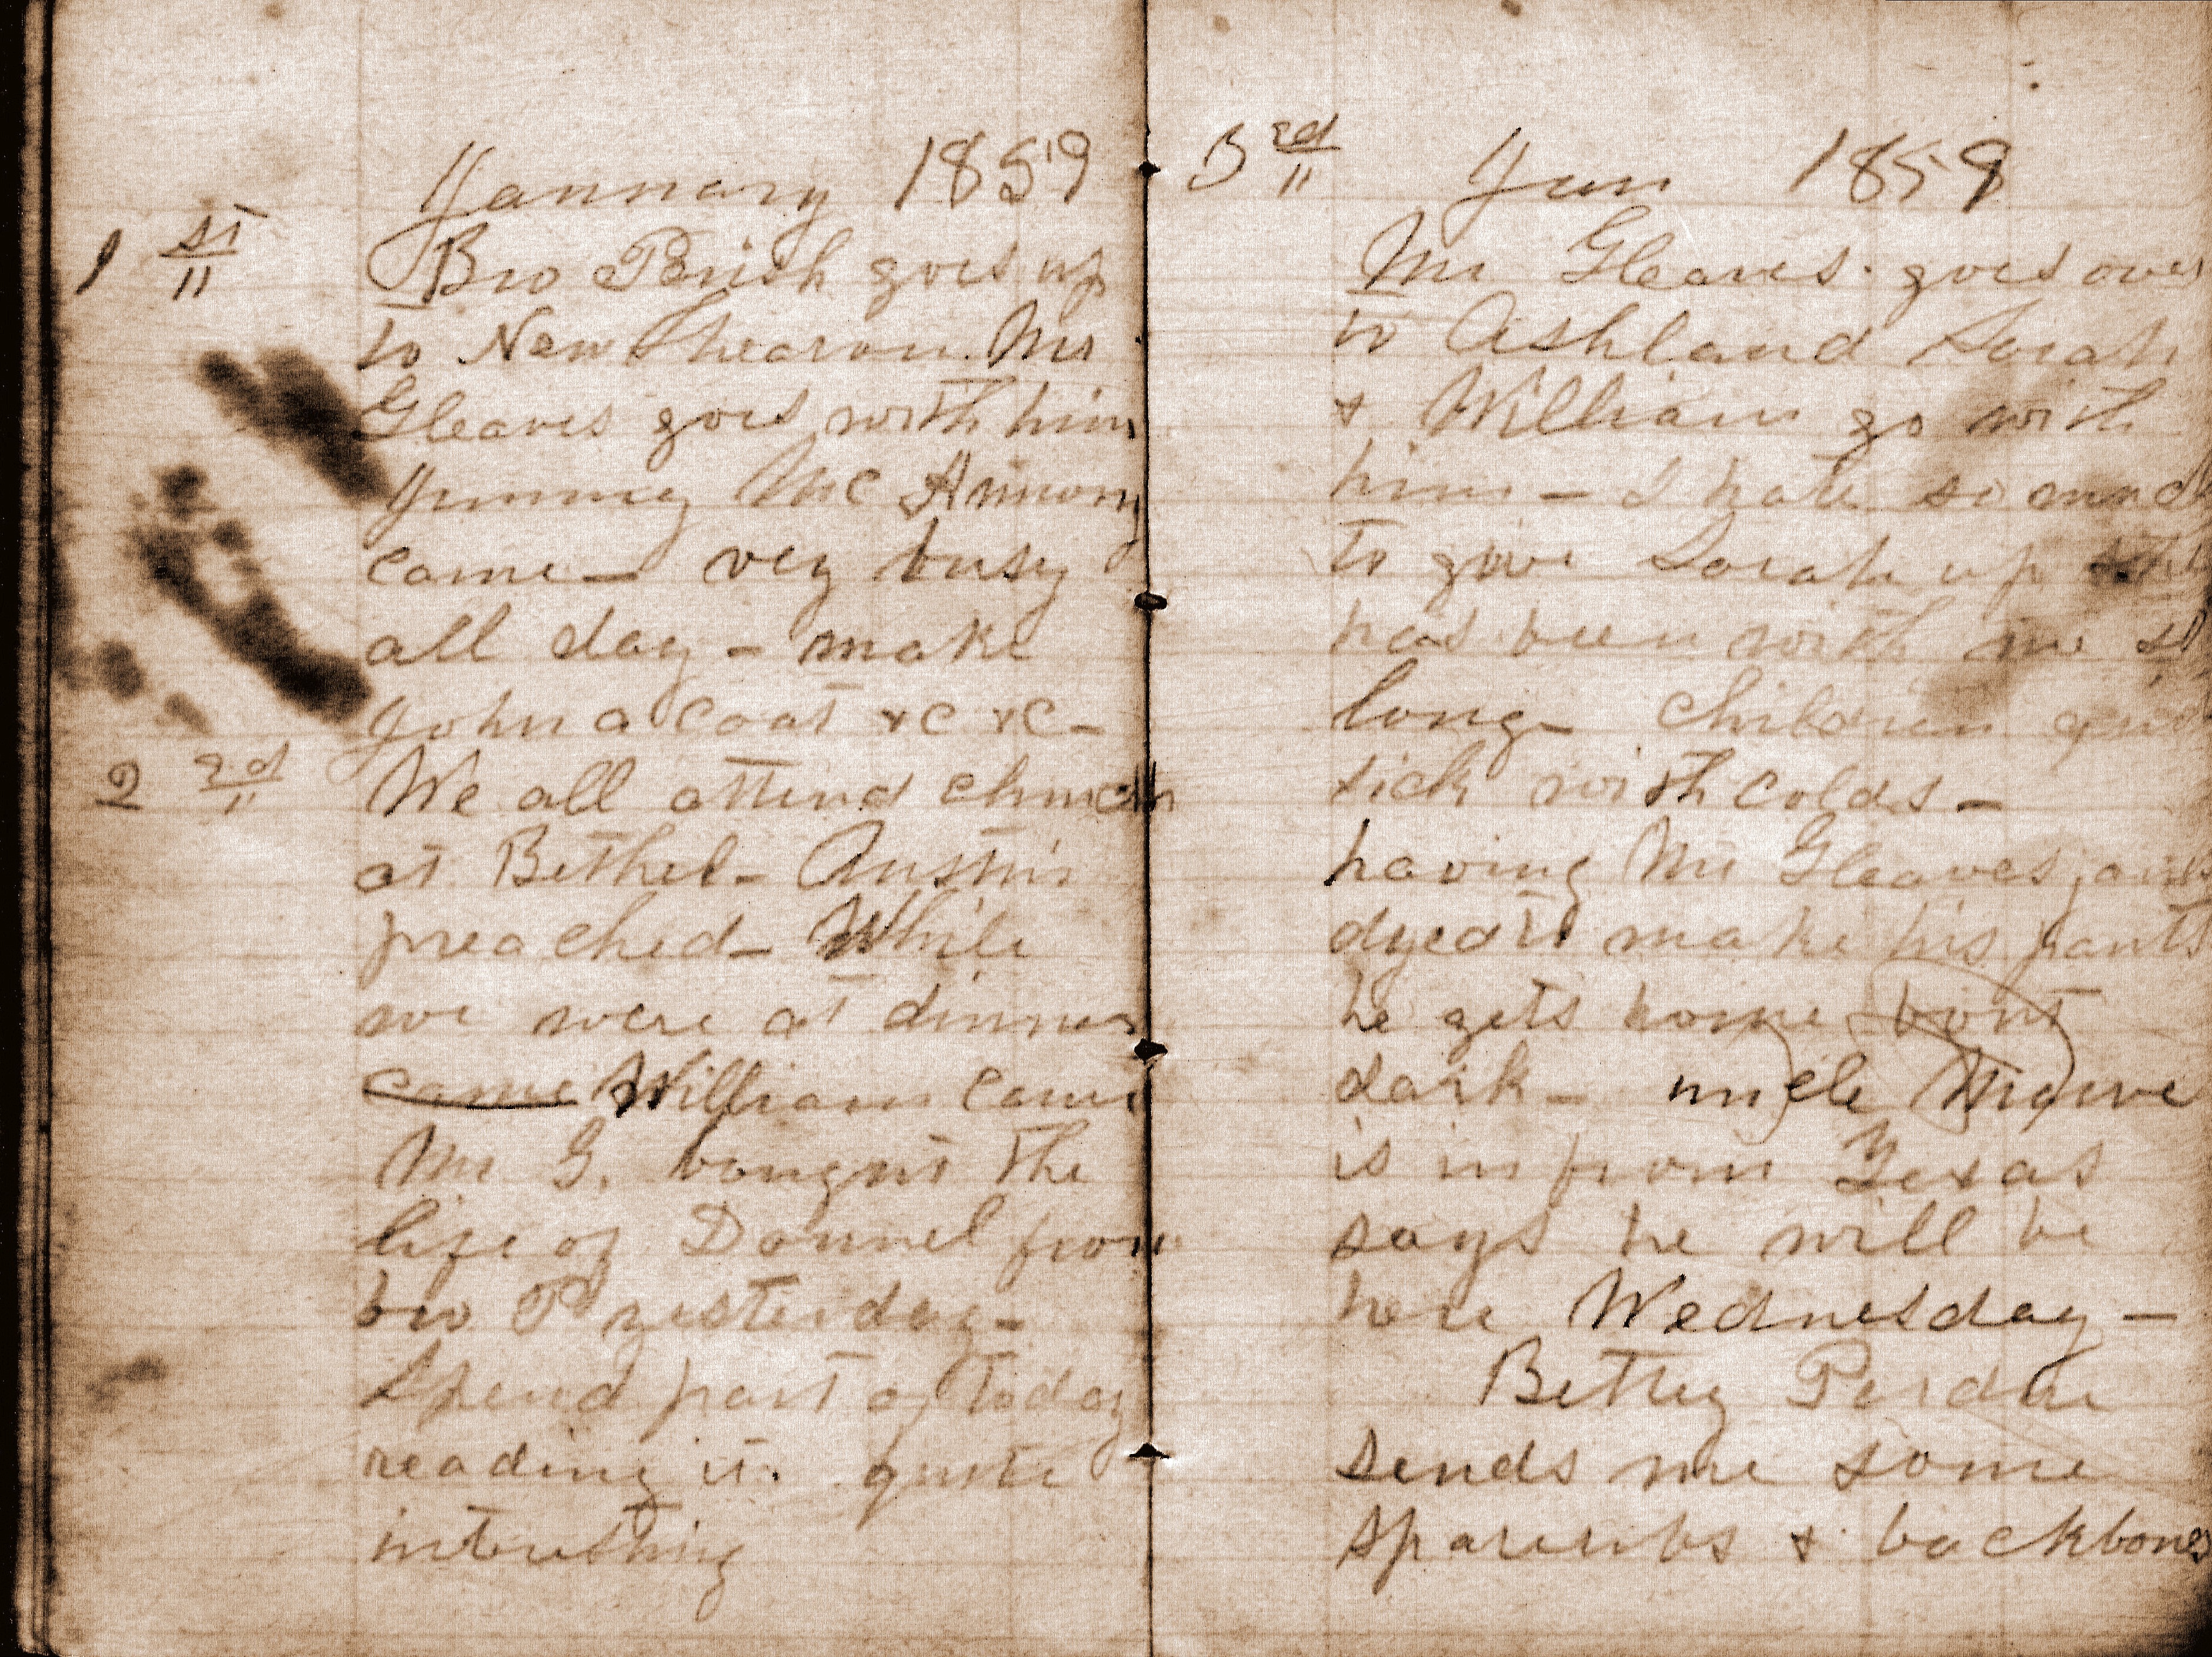 January 1859
1 st
Bro Perish goes up
to New Shearon. Mr
Gleaves goes with him
Jimmey Mc
came - very busy
all day - make
John a coat &c &c -
2 2d
We all attend church
at Bethel - Austin
preached - While
we were at dinner
came William came
Mr G. bought the
life of Donnel from
bro P yesterday -
Spend part of today
reading it. quite
interesting
3 rd
Jan 1859
Mr Gleaves goes over
to Ashland Sarah
& William go with
him - I hate so much
to give Sarah up she
has been with me so
long - Children quite
sick with colds -
having Mr Gleaves janes
dyed to make his pants
he gets home bout
dark - uncle
is in from Texas
says he will be
here Wednesday -
Bettey Perdue
sends me some
spareribs & backbones